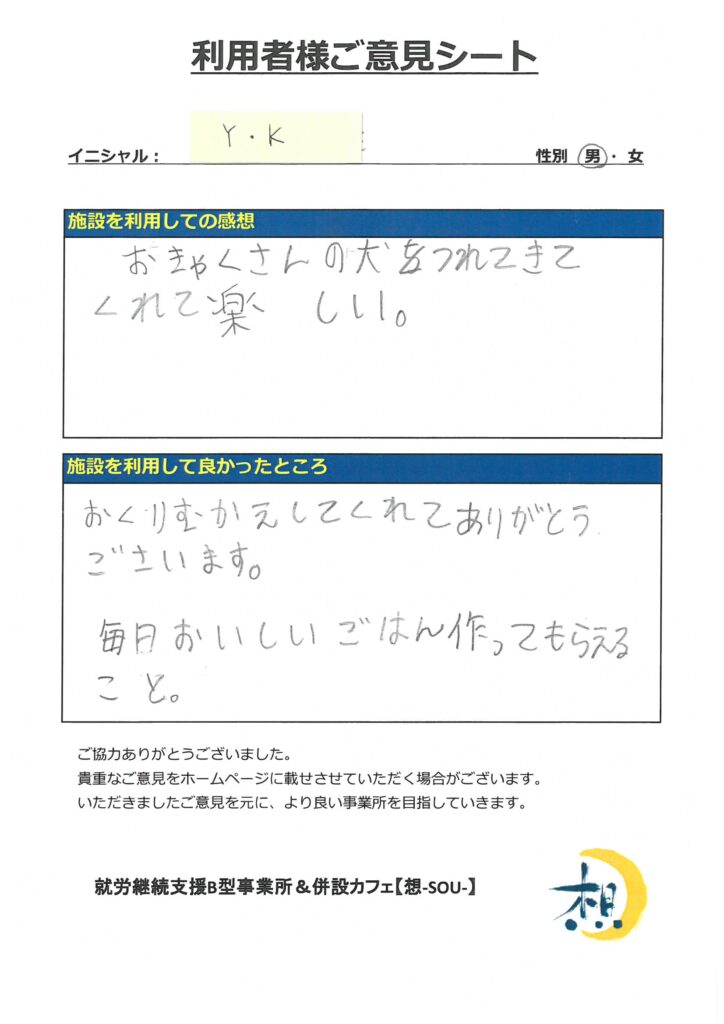 利用者様ご意見シート
イニシャル： Y・K 性別 男・女
施設を利用しての感想
おきゃくさんの犬をつれてきて
くれて楽しい。
施設を利用して良かったところ
おくりむかえしてくれてありがとう
ごさいます。
毎日おいしいごはん作ってもらえる
こと。
ご協力ありがとうございました。
貴重なご意見をホームページに載せさせていただく場合がございます。
いただきましたご意見を元に、より良い事業所を目指していきます。
就労継続支援B型事業所＆併設カフェ【想-SOU-】
想